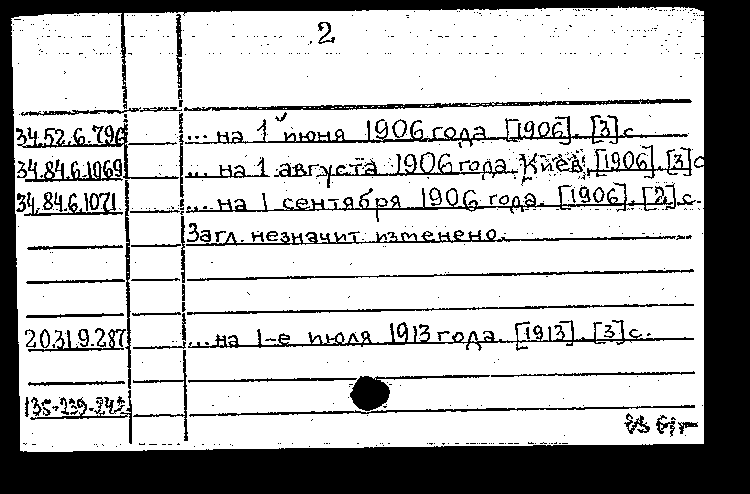 2
34.52.6.796 ... на 1 июня 1906 года [1906]. [3] с.
34.84.6.1069 ... на 1 августа 1906 года. Киев, [1906]. [3] с
34.84.6.1071 ... на 1 сентября 1906 года. [1906]. [2] с.
Загл. незначит изменено.
20.31.9.287 ... на 1-е июля 1913 года. [1913]. [3] с.
135-239-242